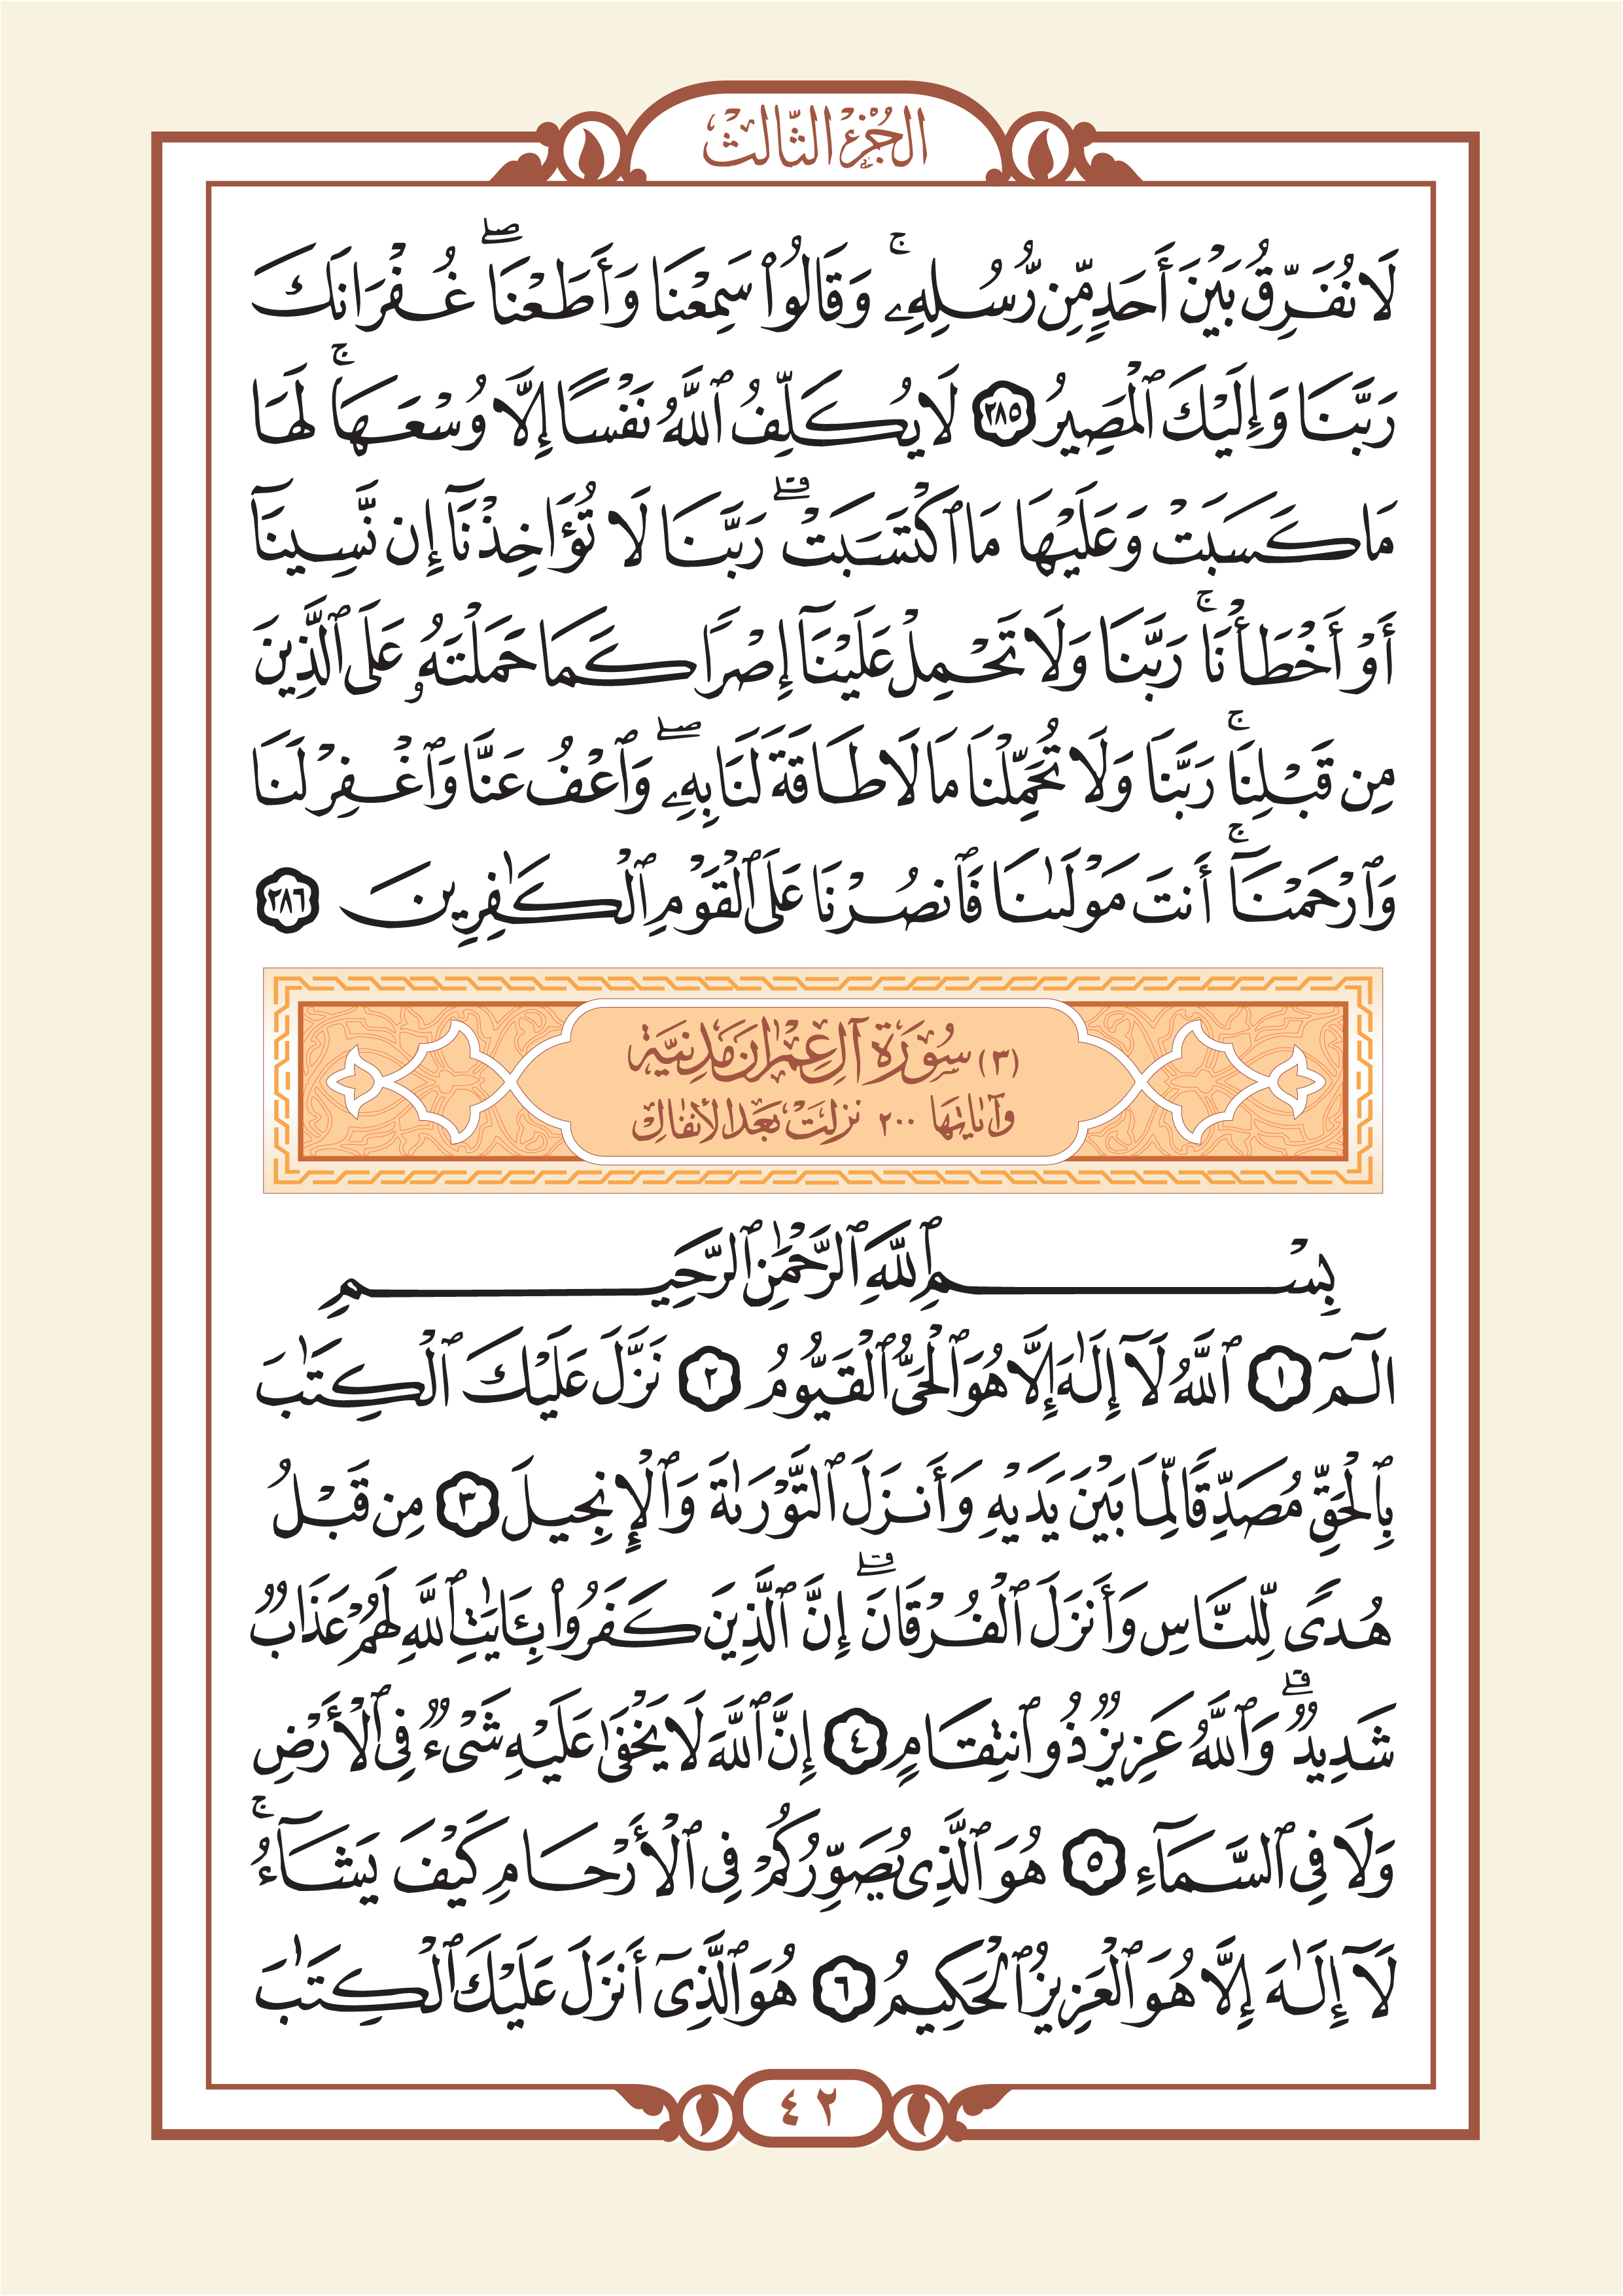 الجُزْءُ الثَّالِثُ
لَا نُفَرِّقُ بَيْنَ أَحَدٍ مِّن رُّسُلِهِۦ ۚ وَقَالُوا۟ سَمِعْنَا وَأَطَعْنَا ۖ غُفْرَانَكَ
رَبَّنَا وَإِلَيْكَ ٱلْمَصِيرُ ٢٨٥ لَا يُكَلِّفُ ٱللَّهُ نَفْسًا إِلَّا وُسْعَهَا ۚ لَهَا
مَا كَسَبَتْ وَعَلَيْهَا مَا ٱكْتَسَبَتْ ۗ رَبَّنَا لَا تُؤَاخِذْنَآ إِن نَّسِينَآ
أَوْ أَخْطَأْنَا ۚ رَبَّنَا وَلَا تَحْمِلْ عَلَيْنَآ إِصْرًا كَمَا حَمَلْتَهُۥ عَلَى ٱلَّذِينَ
مِن قَبْلِنَا ۚ رَبَّنَا وَلَا تُحَمِّلْنَا مَا لَا طَاقَةَ لَنَا بِهِۦ ۖ وَٱعْفُ عَنَّا وَٱغْفِرْ لَنَا
وَٱرْحَمْنَآ ۚ أَنتَ مَوْلَىٰنَا فَٱنصُرْنَا عَلَى ٱلْقَوْمِ ٱلْكَٰفِرِينَ ٢٨٦
(٣) سُورَةُ آلِ عِمْرَانَ مَدَنِيَّة
وَآيَاتُهَا ٢٠٠ نَزَلَتْ بَعْدَ الأَنفَال
بِسْمِ ٱللَّهِ ٱلرَّحْمَٰنِ ٱلرَّحِيمِ
الٓمٓ ١ ٱللَّهُ لَآ إِلَٰهَ إِلَّا هُوَ ٱلْحَىُّ ٱلْقَيُّومُ ٢ نَزَّلَ عَلَيْكَ ٱلْكِتَٰبَ
بِٱلْحَقِّ مُصَدِّقًا لِّمَا بَيْنَ يَدَيْهِ وَأَنزَلَ ٱلتَّوْرَىٰةَ وَٱلْإِنجِيلَ ٣ مِن قَبْلُ
هُدًى لِّلنَّاسِ وَأَنزَلَ ٱلْفُرْقَانَ ۗ إِنَّ ٱلَّذِينَ كَفَرُوا۟ بِـَٔايَٰتِ ٱللَّهِ لَهُمْ عَذَابٌ
شَدِيدٌ ۗ وَٱللَّهُ عَزِيزٌ ذُو ٱنتِقَامٍ ٤ إِنَّ ٱللَّهَ لَا يَخْفَىٰ عَلَيْهِ شَىْءٌ فِى ٱلْأَرْضِ
وَلَا فِى ٱلسَّمَآءِ ٥ هُوَ ٱلَّذِى يُصَوِّرُكُمْ فِى ٱلْأَرْحَامِ كَيْفَ يَشَآءُ ۚ
لَآ إِلَٰهَ إِلَّا هُوَ ٱلْعَزِيزُ ٱلْحَكِيمُ ٦ هُوَ ٱلَّذِىٓ أَنزَلَ عَلَيْكَ ٱلْكِتَٰبَ
٤٢